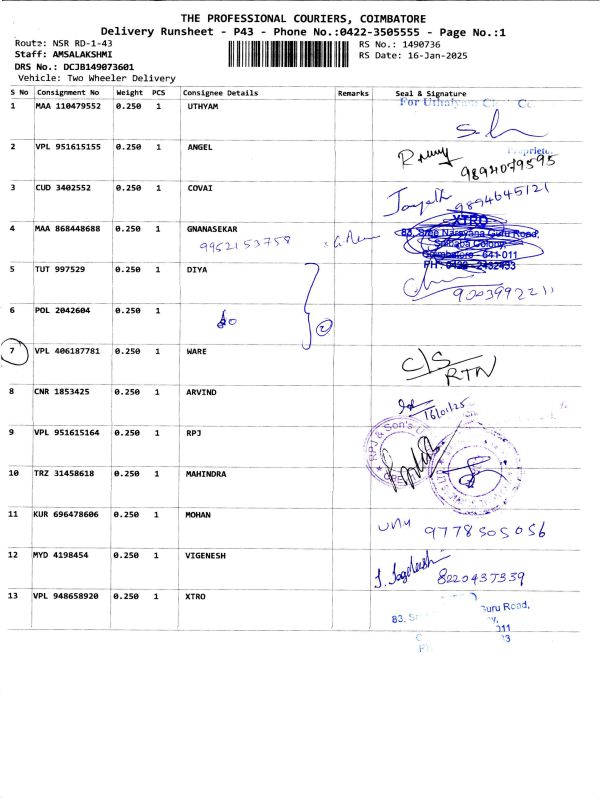 THE PROFESSIONAL COURIERS, COIMBATORE
Delivery Runsheet - P43 - Phone No.:0422-3505555 - Page No.:1
Route: NSR RD-1-43
RS No.: 1490736
Staff: AMSALAKSHMI
RS Date: 16-Jan-2025
DRS No.: DCJB149073601
Vehicle: Two Wheeler Delivery
S No Consignment No Weight PCS Consignee Details Remarks Seal & Signature
1 MAA 110479552 0.250 1 UTHYAM
2 VPL 951615155 0.250 1 ANGEL
Proprietor
9894079595
3 CUD 3402552 0.250 1 COVAI
9894645121
4 MAA 868448688 0.250 1 GNANASEKAR
9952153758
XTRO
83, Sree Narayana Guru Road,
Saibaba Colony,
Coimbatore - 641 011
PH: 0422 - 2432433
5 TUT 997529 0.250 1 DIYA
9003992211
6 POL 2042604 0.250 1
2
7 VPL 406187781 0.250 1 WARE
C/S
RTN
8 CNR 1853425 0.250 1 ARVIND
16/01/25
9 VPL 951615164 0.250 1 RPJ
RPJ & Son's
10 TRZ 31458618 0.250 1 MAHINDRA
11 KUR 696478606 0.250 1 MOHAN
9778505056
12 MYD 4198454 0.250 1 VIGENESH
8220437339
13 VPL 948658920 0.250 1 XTRO
83, Guru Road,